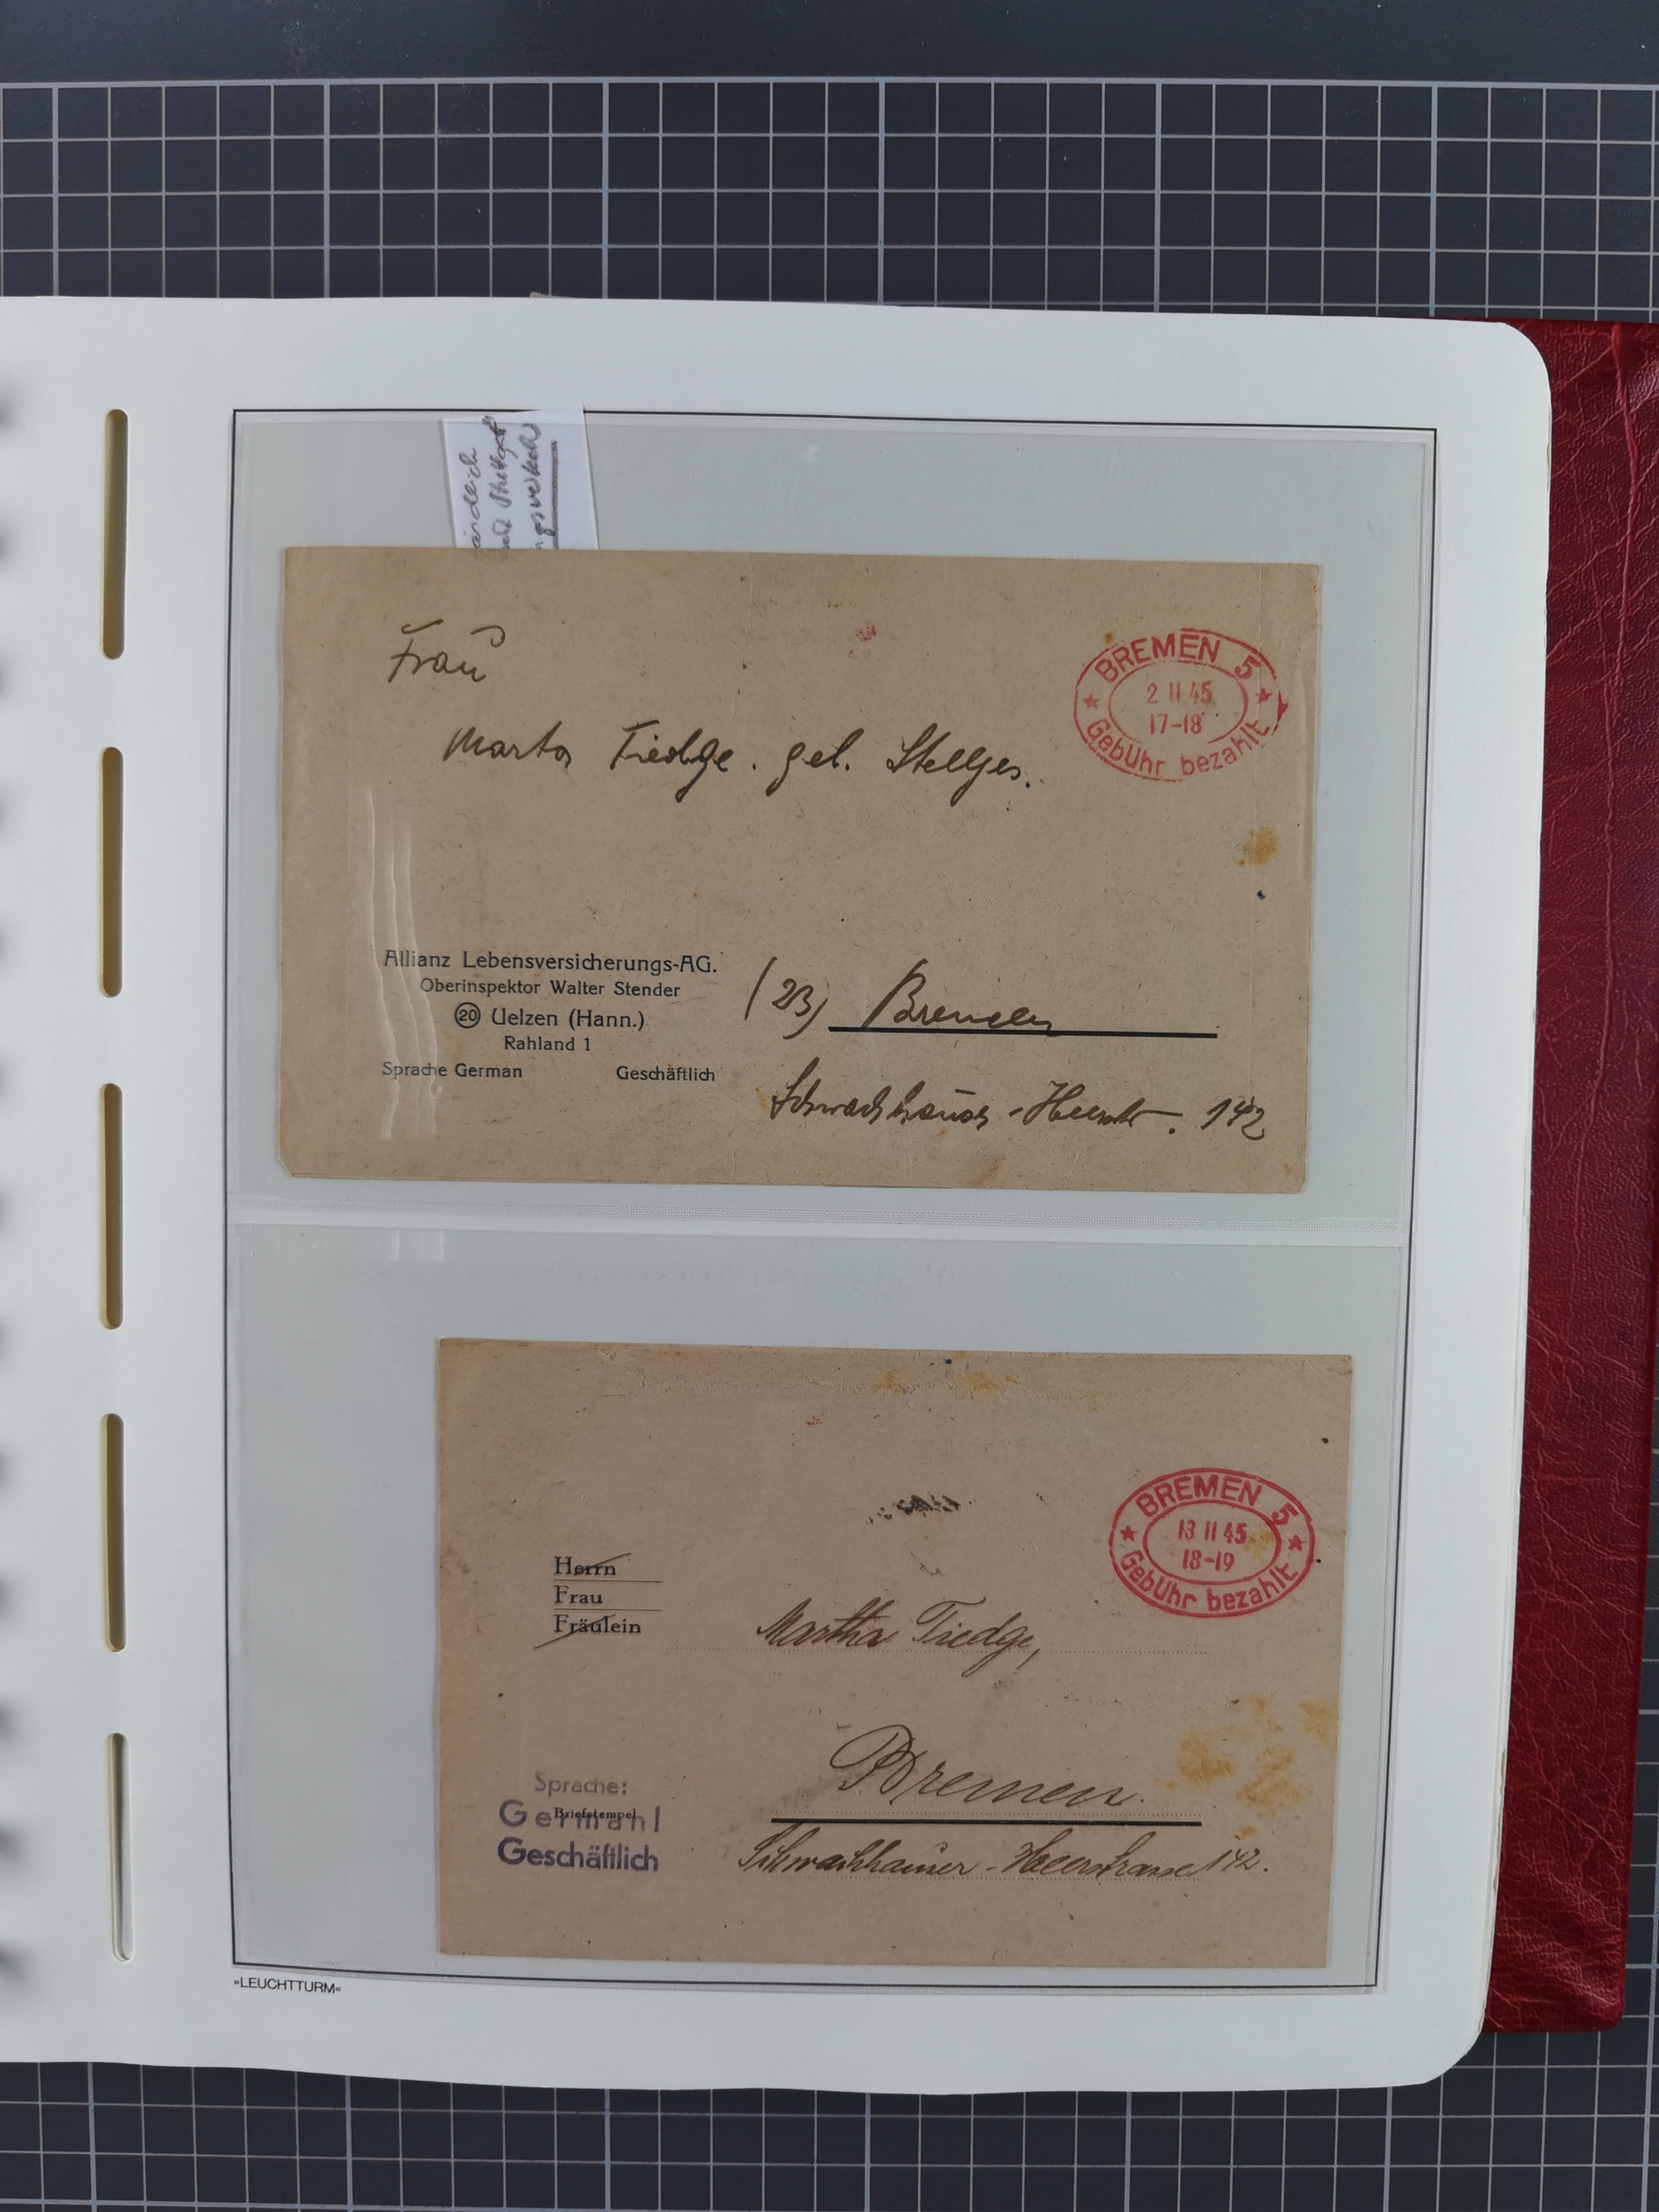 Frau
Marta Tiedge. geb. Stellges.
BREMEN 5
2 11 45
17-18
Gebühr bezahlt
Allianz Lebensversicherungs-AG.
Oberinspektor Walter Stender
20 Uelzen (Hann.)
Rahland 1
Sprache German Geschäftlich
(23) Bremen
Schwachhauser-Heerstr. 142
BREMEN 5
13 11 45
18-19
Gebühr bezahlt
Herrn
Frau
Fräulein
Martha Tiedge,
Bremen
Schwachhauser-Heerstrasse 142.
Sprache:
German!
Briefstempel
Geschäftlich
»LEUCHTTURM«